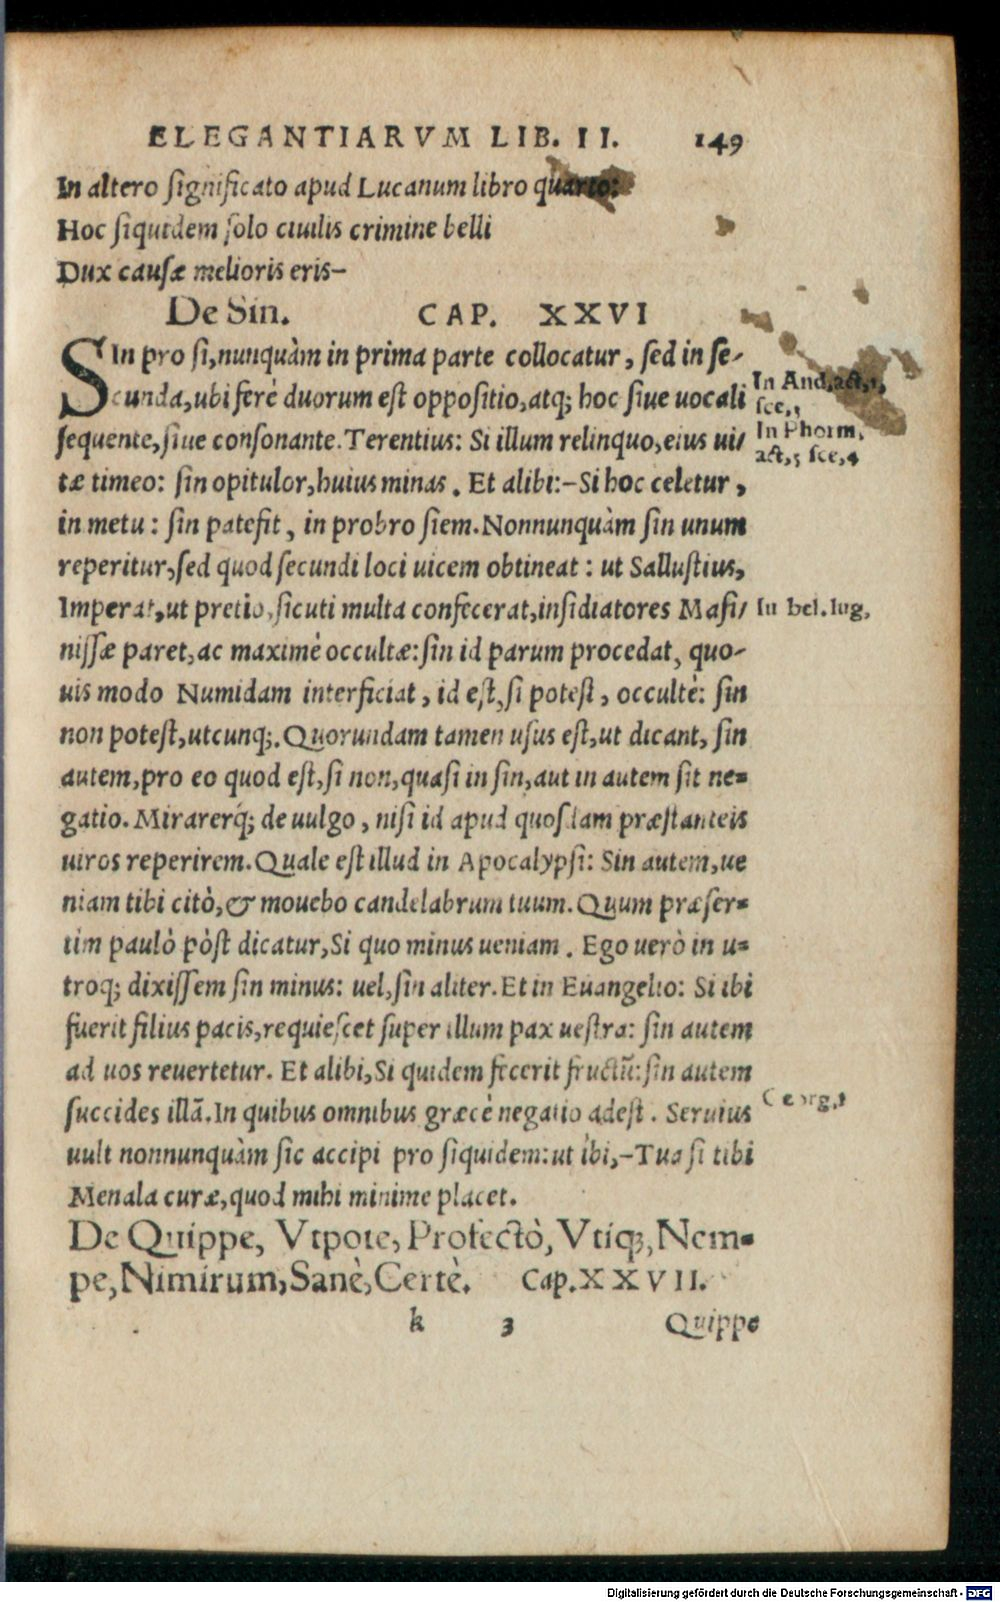 ELEGANTIARVM LIB. II. 149
In altero significato apud Lucanum libro quarto:
Hoc siquidem solo ciuilis crimine belli
Dux causæ melioris eris—
De Sin. CAP. XXVI
SIn pro si, nunquàm in prima parte collocatur, sed in se-
cunda, ubi ferè duorum est oppositio, atq; hoc siue uocali
sequente, siue consonante. Terentius: Si illum relinquo, eius ui/
tæ timeo: sin opitulor, huius minas. Et alibi:—Si hoc celetur,
in metu: sin patefit, in probro siem. Nonnunquàm sin unum
reperitur, sed quod secundi loci uicem obtineat: ut Sallustius,
Imperat, ut pretio, sicuti multa confecerat, insidiatores Masi/
nissæ paret, ac maximè occultæ: sin id parum procedat, quo-
uis modo Numidam interficiat, id est, si potest, occultè: sin
non potest, utcunq;. Quorundam tamen usus est, ut dicant, sin
autem, pro eo quod est, si non, quasi in sin, aut in autem sit ne=
gatio. Mirarerq́; de uulgo, nisi id apud quosdam præstanteis
uiros reperirem. Quale est illud in Apocalypsi: Sin autem, ue
niam tibi citò, & mouebo candelabrum tuum. Quum præser=
tim paulò pòst dicatur, Si quo minus ueniam. Ego uerò in u=
troq; dixissem sin minus: uel, sin aliter. Et in Euangelio: Si ibi
fuerit filius pacis, requiescet super illum pax uestra: sin autem
ad uos reuertetur. Et alibi, Si quidem fecerit fructũ: sin autem
succides illã. In quibus omnibus græcè negatio adest. Seruius
uult nonnunquàm sic accipi pro siquidem: ut ibi,—Tua si tibi
Menala curæ, quod mihi minime placet.
De Quippe, Vtpote, Profectò, Vtiq;, Nem=
pe, Nimirum, Sanè, Certè. Cap. XXVII.
k 3 Quippe
In And, act, 1,
sce, 1
In Phorm,
act, 5 sce, 4
In bel. Iug,
Georg, 1
Digitalisierung gefördert durch die Deutsche Forschungsgemeinschaft - DFG